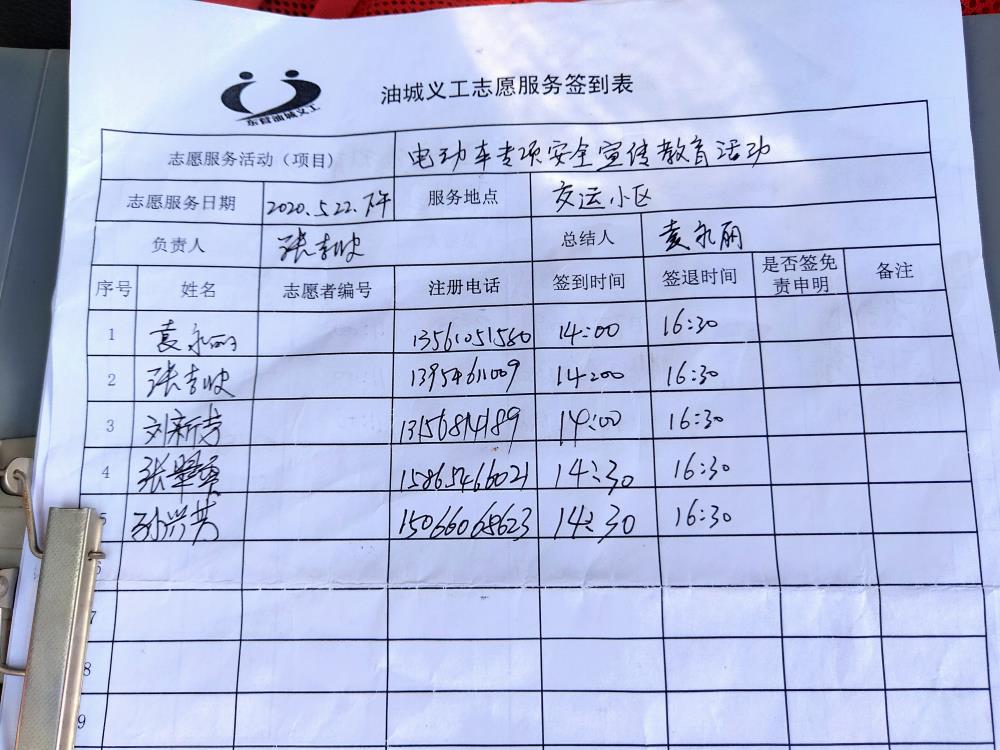 油城义工志愿服务签到表
东营油城义工
志愿服务活动（项目） 电动车专项安全宣传教育活动
志愿服务日期 2020.5.22.下午 服务地点 交运小区
负责人 张 总结人 袁永丽
序号 姓名 志愿者编号 注册电话 签到时间 签退时间 是否签免责申明 备注
1 袁永丽 13561051580 14:00 16:30
2 张 13954611009 14:00 16:30
3 刘新芳 13156814189 14:00 16:30
4 张翠 15865466021 14:30 16:30
5 孙兴芳 15066068623 14:30 16:30
6
7
8
9